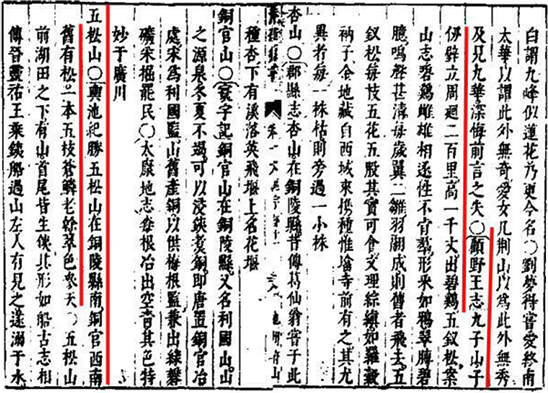 白謂九峰似蓮花乃更今名○劉夢得嘗愛終南
太華以謂此外無奇愛女几荆山以爲此外無秀
及見九華深悔前言之失○顧野王志九子山千
仞壁立周迴二百里高一千丈出碧鷄五釵松案
山志碧鷄雌雄相逐性不形采如鴉翠脾碧
臆鳴聲甚清每歲翼二雛羽成則傳者飛去五
釵松每枝五花五股其實可食文理綜纈如羅縠
衲子金地藏自西域來携種惟墖寺前有之其尤
異者每一株枯則旁過一小株
杏山○郡縣志杏山在銅陵縣昔傳葛仙翁嘗于此
種杏下有溪落英飛堰上名花堰
銅官山○寰宇記銅官山在銅陵縣又名利國山山
之源泉冬夏不竭可以浸鐵煑銅即唐置銅官冶
處宋爲利國監山舊產銅以供梅根監兼出綠礬
礦宋罷民○太康地志梅根冶出空青其色特
妙于廣川
五松山○輿地紀勝五松山在銅陵縣南銅官西南
舊有松一本五枝蒼鱗老幹翠色參天○五松山
前湖田之下有山首尾皆生鐵其形如船古志相
傳晉靈祐王乘鐵船過山左人有見之遂溺于水